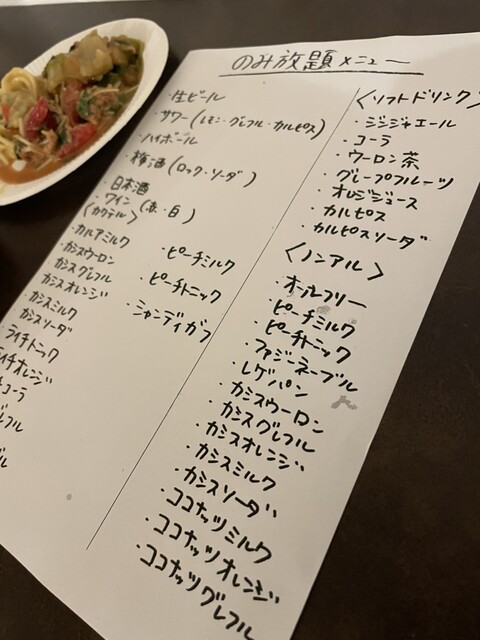 のみ放題メニュー
・生ビール
・サワー(レモン・グレフル・カルピス)
・ハイボール
・梅酒(ロック・ソーダ)
・日本酒
・ワイン(赤・白)
〈カクテル〉
・カルアミルク
カシスウーロン
カシスグレフル
カシスオレンジ
カシスミルク
カシスソーダ
ライチトニック
イチオレンジ
コーラ
レフル
・ピーチミルク
・ピーチトニック
・シャンディガフ
〈ソフトドリンク〉
・ジンジャエール
・コーラ
・ウーロン茶
・グレープフルーツ
・オレンジジュース
・カルピス
・カルピスソーダ
〈ノンアル〉
・オールフリー
・ピーチミルク
・ピーチトニック
・ファジーネーブル
・レゲパン
・カシスウーロン
・カシスグレフル
・カシスオレンジ
・カシスミルク
・カシスソーダ
・ココナッツミルク
・ココナッツオレンジ
・ココナッツグレフル